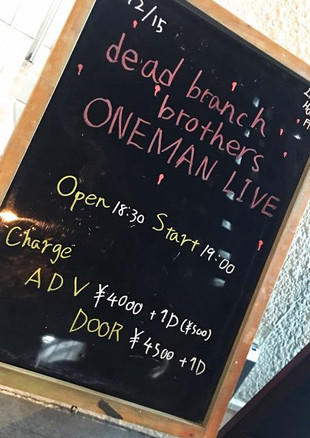 12/15
dead branch
brothers
ONEMAN LIVE
Open 18:30 Start 19:00
Charge
ADV ¥4000 +1D(¥500)
DOOR ¥4500 +1D